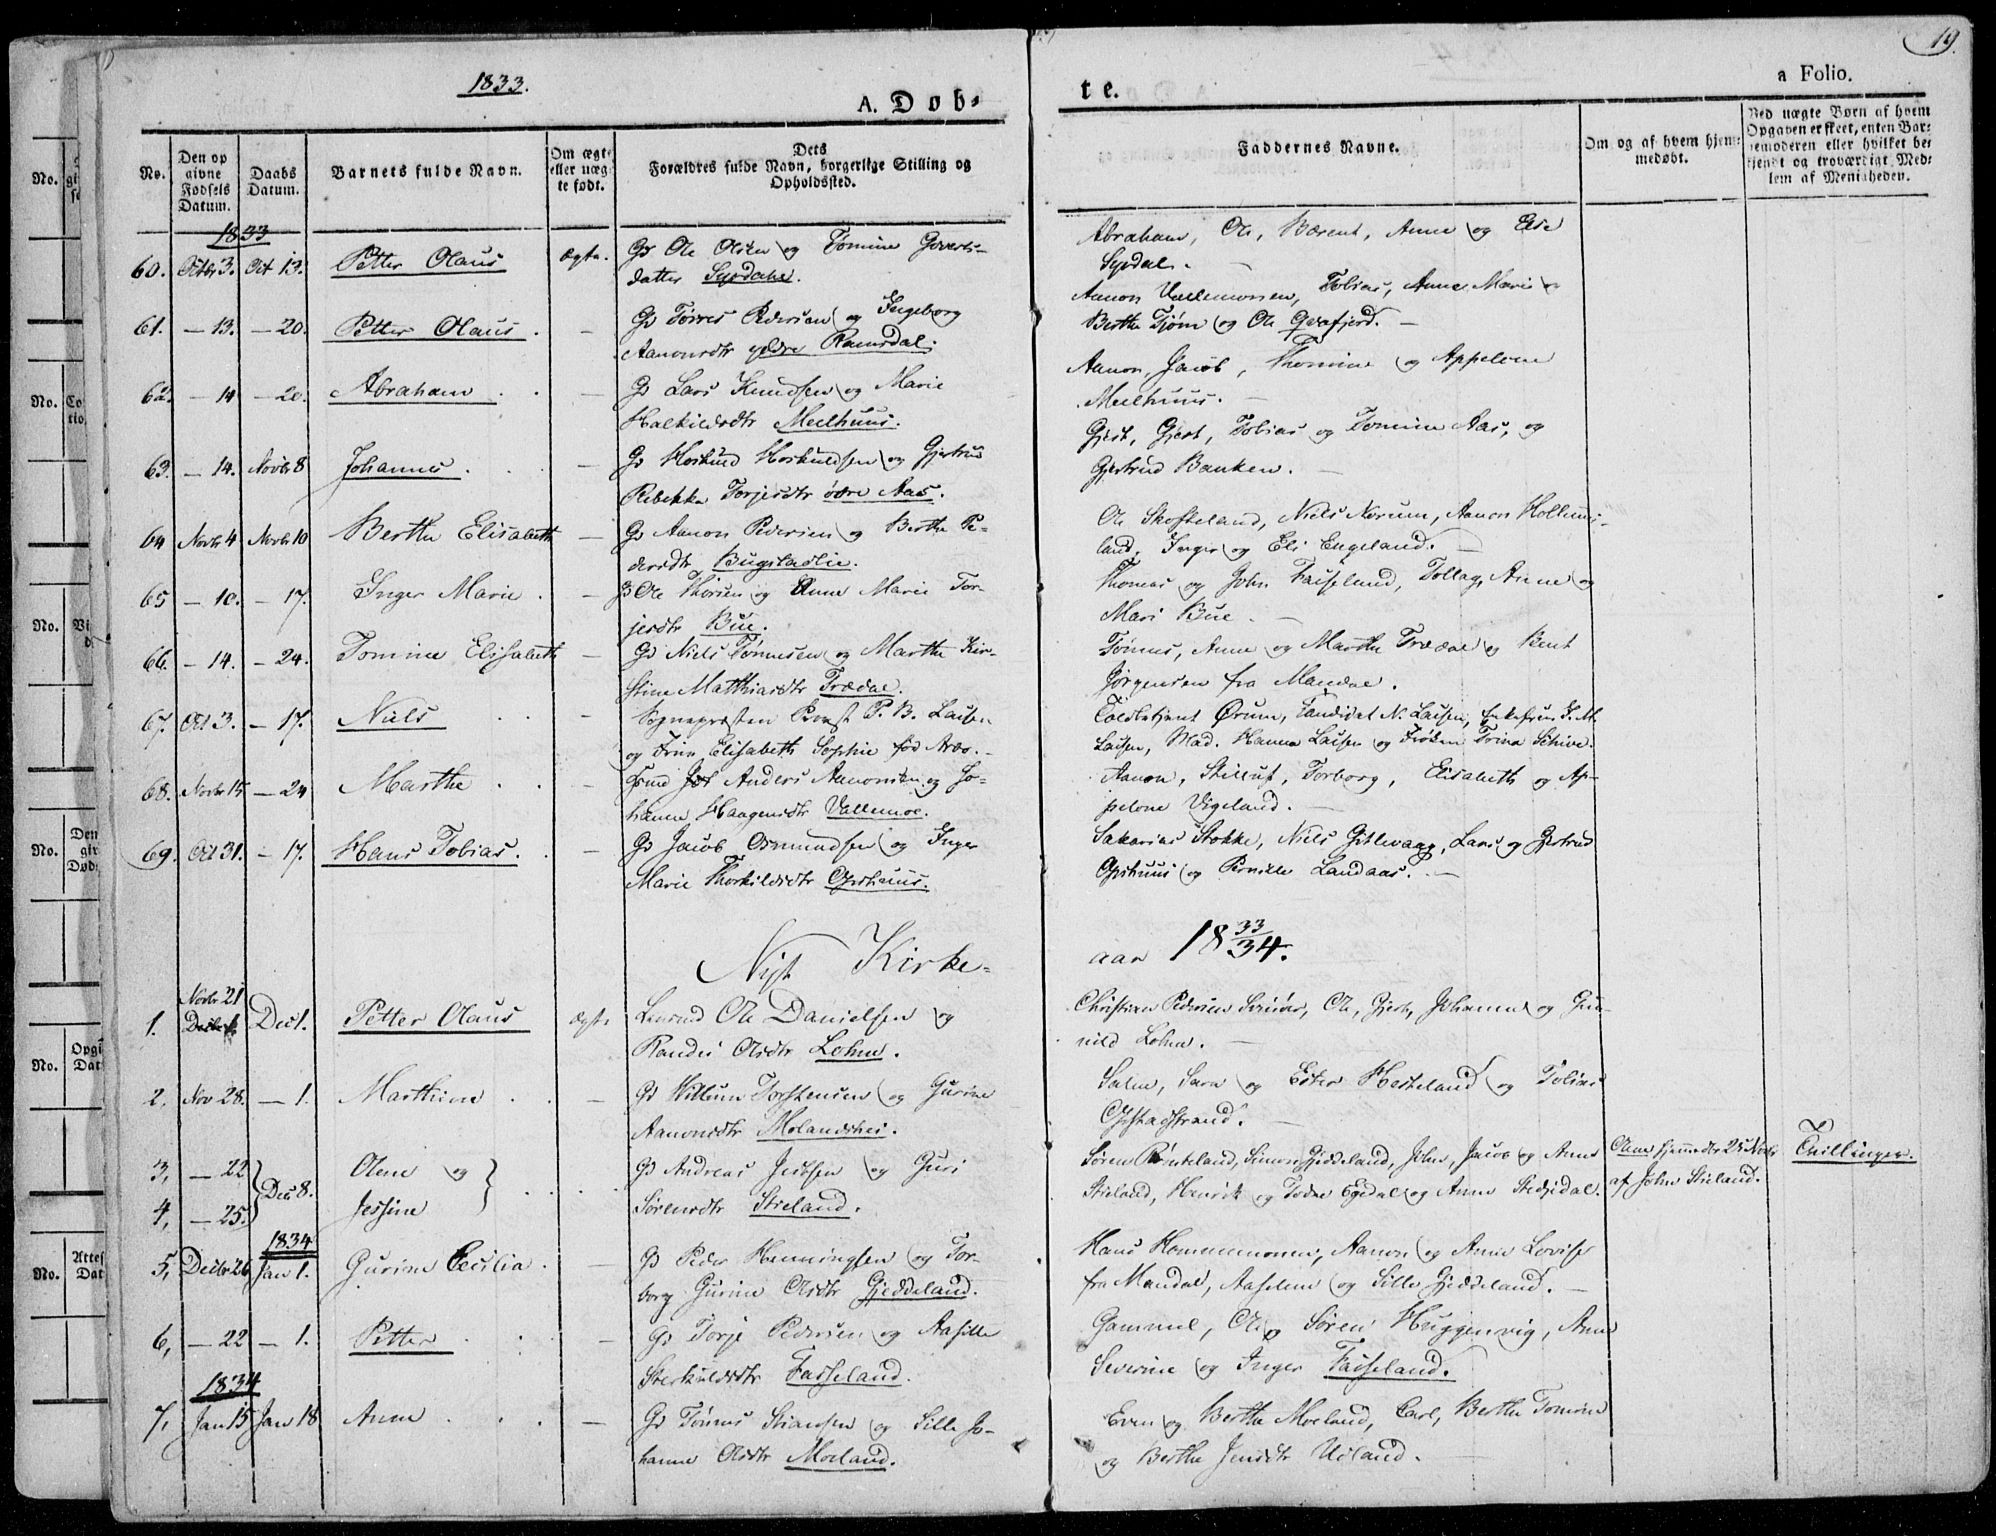 1833.
19.
A. Døb-
te.
a Folio.
No. Den opgivne Fødsels Datum. Daabs Datum. Barnets fulde Navn. Om ægte eller uægte født. Dets Forældres fulde Navn, borgerlige Stilling og Opholdssted.
Faddernes Navne. Om og af hvem hjemmedøbt. Ved uægte Børn af hvem Opgaven er skeet, enten Barnemoderen eller hvilket bekjendt og troværdigt Medlem af Menigheden.
1833
60. Octbr 3. Oct 13. Petter Olaus ægte. Gd Ole Olsen og Tomine Goverts-
datter Syrdahl.
Abraham, Ole, Bærent, Anne og Else
Syrdal.
61. — 13. — 20. Petter Olaus . — Gd Tørres Pedersen og Ingeborg
Aanonsdtr ydre Ramsdal.
Aanon Vallemoen, Tobias, Anne Marie og
Berthe Tjøm og Ole Qvafjord. —
62. — 14 — 20. Abraham . . — Gd Lars Knudsen og Marie
Halkildsdtr Meelhuus.
Aanon, Jacob, Thomine og Appelone
Meelhuus. —
63. — 14. Novbr 8 Johannes . . — Gd Hoskuld Hoskuldsen og Gjertrud
Rebekka Torjesdtr øvre Aas.
Gjest, Gjest, Tobias og Tomine Aas, og
Gjertrud Banken. —
64 Novbr 4 Novbr 10 Berthe Elisabeth — Gd Aanon Pedersen og Berthe Pe-
dersdtr Bugstadlie.
Ole Skofteland, Niels Norum, Aanon Hollums-
land, Inger og Eli Engeland. —
65 — 10. — 17. Inger Marie . — Ole Thorsen og Anne Marie Tor-
jesdtr Bue.
Thomas og John Faiseland, Tollag, Anne og
Mari Bue . —
66. — 14. — 24. Tomine Elisabeth — Gd Niels Tønnesen og Marthe Kir-
stine Matthiasdtr Trædal.
Tønnes, Anne og Marthe Trædal og Bent
Jørgensen fra Mandal.
67. Oct 3. — 17. Niels . . — Sognepræsten Provst P. B. Laisen
og Frue Elisabeth Sophie fød Arbo. —
Toldbetjent Ørum, Candidat N. Laisen, Enkefrue K. M.
Laisen, Mad. Hanna Laisen og Frøken Trina Schive.
68. Novbr 15 — 24 Marthe . . — Anders Aanonsen og Jo-
hanne Haagensdtr Vallemoe.
Aanon, Stilluf, Torborg, Elisabeth og Ap-
pelone Vigeland. —
69. Oct 31. — 17. Hans Tobias. . — Gd Jacob Osmundsen og Inger
Marie Thorkildsdtr Opshuus.
Sakarias Stokke, Niels Gitlevaag, Lars og Gjertrud
Opshuus og Pernille Landaas. —
Nyt Kirke-
aar 18 33/34.
Novbr 21
1. Dec 1. Petter Olaus ægte Ole Danielsen og
Randi Olsdtr Lohne.
Christian Pedersen, Ole, Gjest, Johanne og Gun-
nild Lohne. —
2. Nov 28. — 1. Marthine . . — Gd Willum Torstensen og Gurine
Aanonsdtr Molandshei.
Salve, Sara og Ester Hesteland og Tobias
Opstadstrand. —
3, — 22 Olene og . . . . Gd Andreas Jacobsen og Guri
4, — 25. Dec 8. Jessine Sørensdtr Stieland.
Søren Rønteland, Simon Gjeddeland, John, Jacob og Anne
Stieland, Henrik og Todne Egedal og Anne Stedjedal.
Olene hjemmedbt 25 Novbr
af John Stieland.
Tvillinger.
1834
5, Decbr 26 Jan 1. Gurine Cecilia . — Gd Peder Henningsen og Tor-
borg Gurine Olsdtr Gjeddeland.
Hans Hommemonen, Aanon og Anne Lovise
fra Mandal, Aaselene og Sille Gjeddeland. —
6, — 22 — 1. Petter . . — Gd Torje Pedersen og Aasille
Sterkuldsdtr Faiseland.
Gammel, Ole, Søren Huggenvig, Anne
Severine og Inger Faiseland.
1834
7, Jan 15 Jan 18 Anne . . . — Gd Tønnes Stiansen og Sille Jo-
hanne Olsdtr Moeland.
Even og Berthe Moeland, Carl, Berthe Tomine
og Berthe Jensdtr Udland.